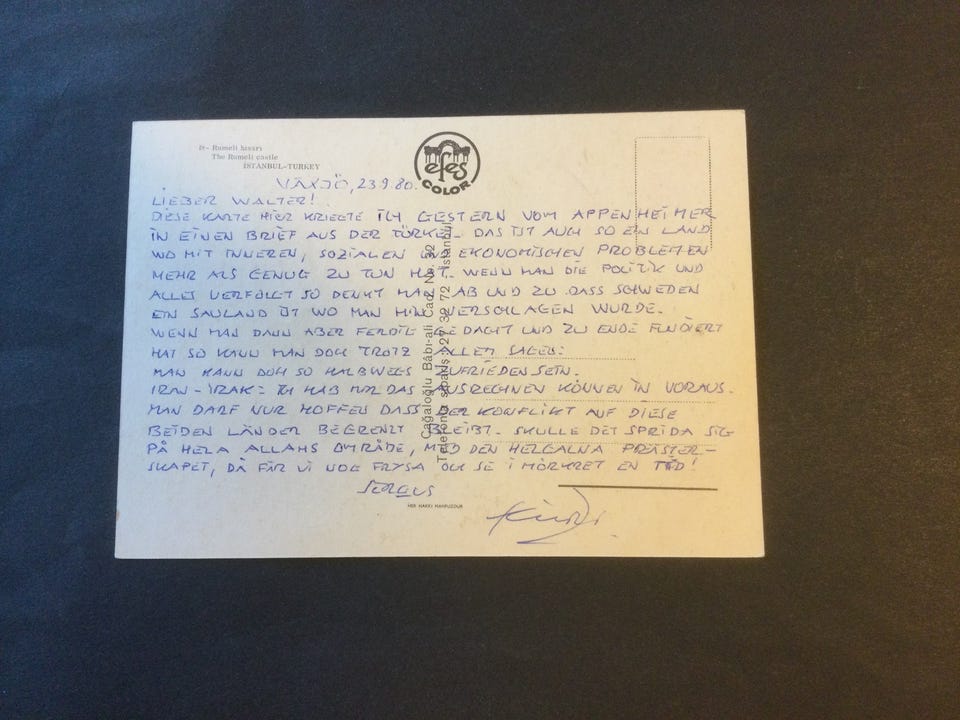 15- Rumeli hisarı
The Rumeli castle
İSTANBUL-TURKEY
efes
COLOR
VÄXJÖ, 23.9.80.
LIEBER WALTER!
DIESE KARTE HIER KRIEGTE ICH GESTERN VOM APPENHEIMER
IN EINEN BRIEF AUS DER TÜRKEI. DAS IST AUCH SO EIN LAND
WO MIT INNEREN, SOZIALEN U. EKONOMISCHEN PROBLEMEN
MEHR ALS GENUG ZU TUN HAT. WENN MAN DIE POLITIK UND
ALLES VERFOLGT SO DENKT MAN AB UND ZU DASS SCHWEDEN
EIN SAULAND IST WO MAN HIN VERSCHLAGEN WURDE.
WENN MAN DANN ABER FERTIG GEDACHT UND ZU ENDE FUNDIERT
HAT SO KANN MAN DOCH TROTZ ALLEM SAGEN:
MAN KANN DOCH SO HALBWEGS ZUFRIEDEN SEIN.
IRAN-IRAK: ICH HAB MIR DAS AUSRECHNEN KÖNNEN IN VORAUS.
MAN DARF NUR HOFFEN DASS DER KONFLIKT AUF DIESE
BEIDEN LÄNDER BEGRENZT BLEIBT. SKULLE DET SPRIDA SIG
PÅ HELA ALLAHS OMRÅDE, MED DEN HELGALNA PRÄSTER-
SKAPET, DÅ FÅR VI NOG FRYSA OCH SE I MÖRKRET EN TID!
SERVUS
HER HAKKI MAHFUZDUR
Cağaloğlu Bâbı-ali Cad. No: 32
Telefonla sipariş: 27 39 72 - İstanbul